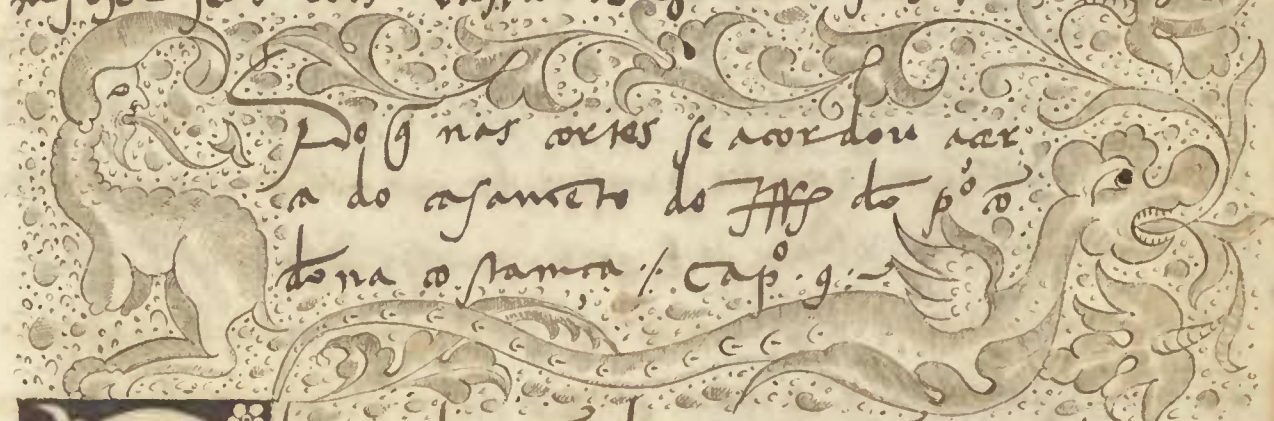 Do q̃ nas cortes se acordou acer
ca do casamẽto do Iffãte dõ pº cõ
dona costamça /. Capº. 9. -